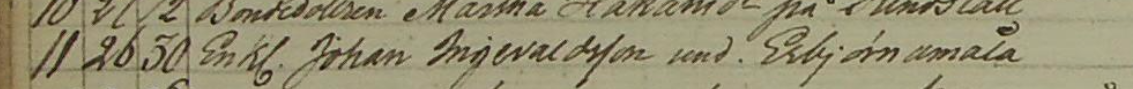 10 21/2 Bondedottren Martha Håkansdr på
11 26 30 Enkl. Johan Ingevaldsson und. Esbjörnamåla